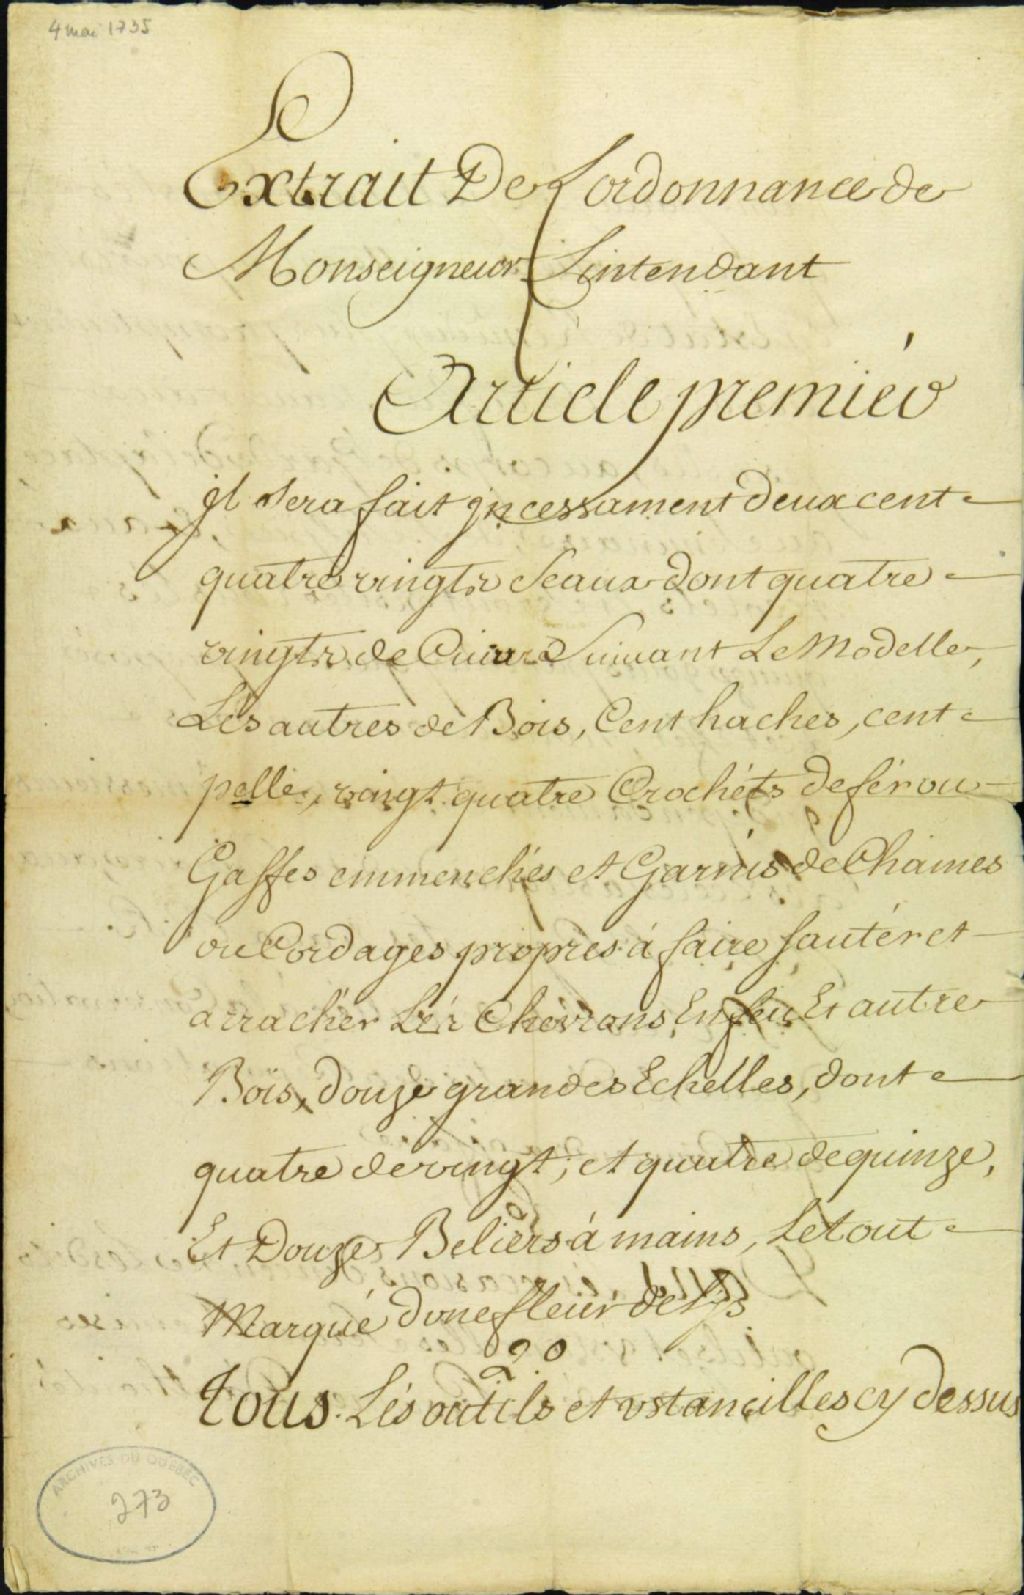 4 mai 1735
Extrait De Lordonnance de
Monseigneur Lintendant
Article premier
jl sera fait jncessament deux cent
quatre vingts Seaux dont quatre
vingts de Cuire Suiuant Le Modelle,
Lés autres de Bois, Cent haches, cent
pelle, vingt quatre Crochéts de fér ou
Gaffes emmenchés et Garnis de Chaines
ou Cordages propres á faire sautér et
arracher Lés Chevrons En feu Et autre
Bois, douze grandes Echelles, dont
quatre de vingt, et quatre de quinze,
Et Douze Beliers á mains, Le tout
Marqué dune fleur de Lys
2o
Tous Lés outils et vstancilles cy dessus
ARCHIVES DU QUÉBEC
273